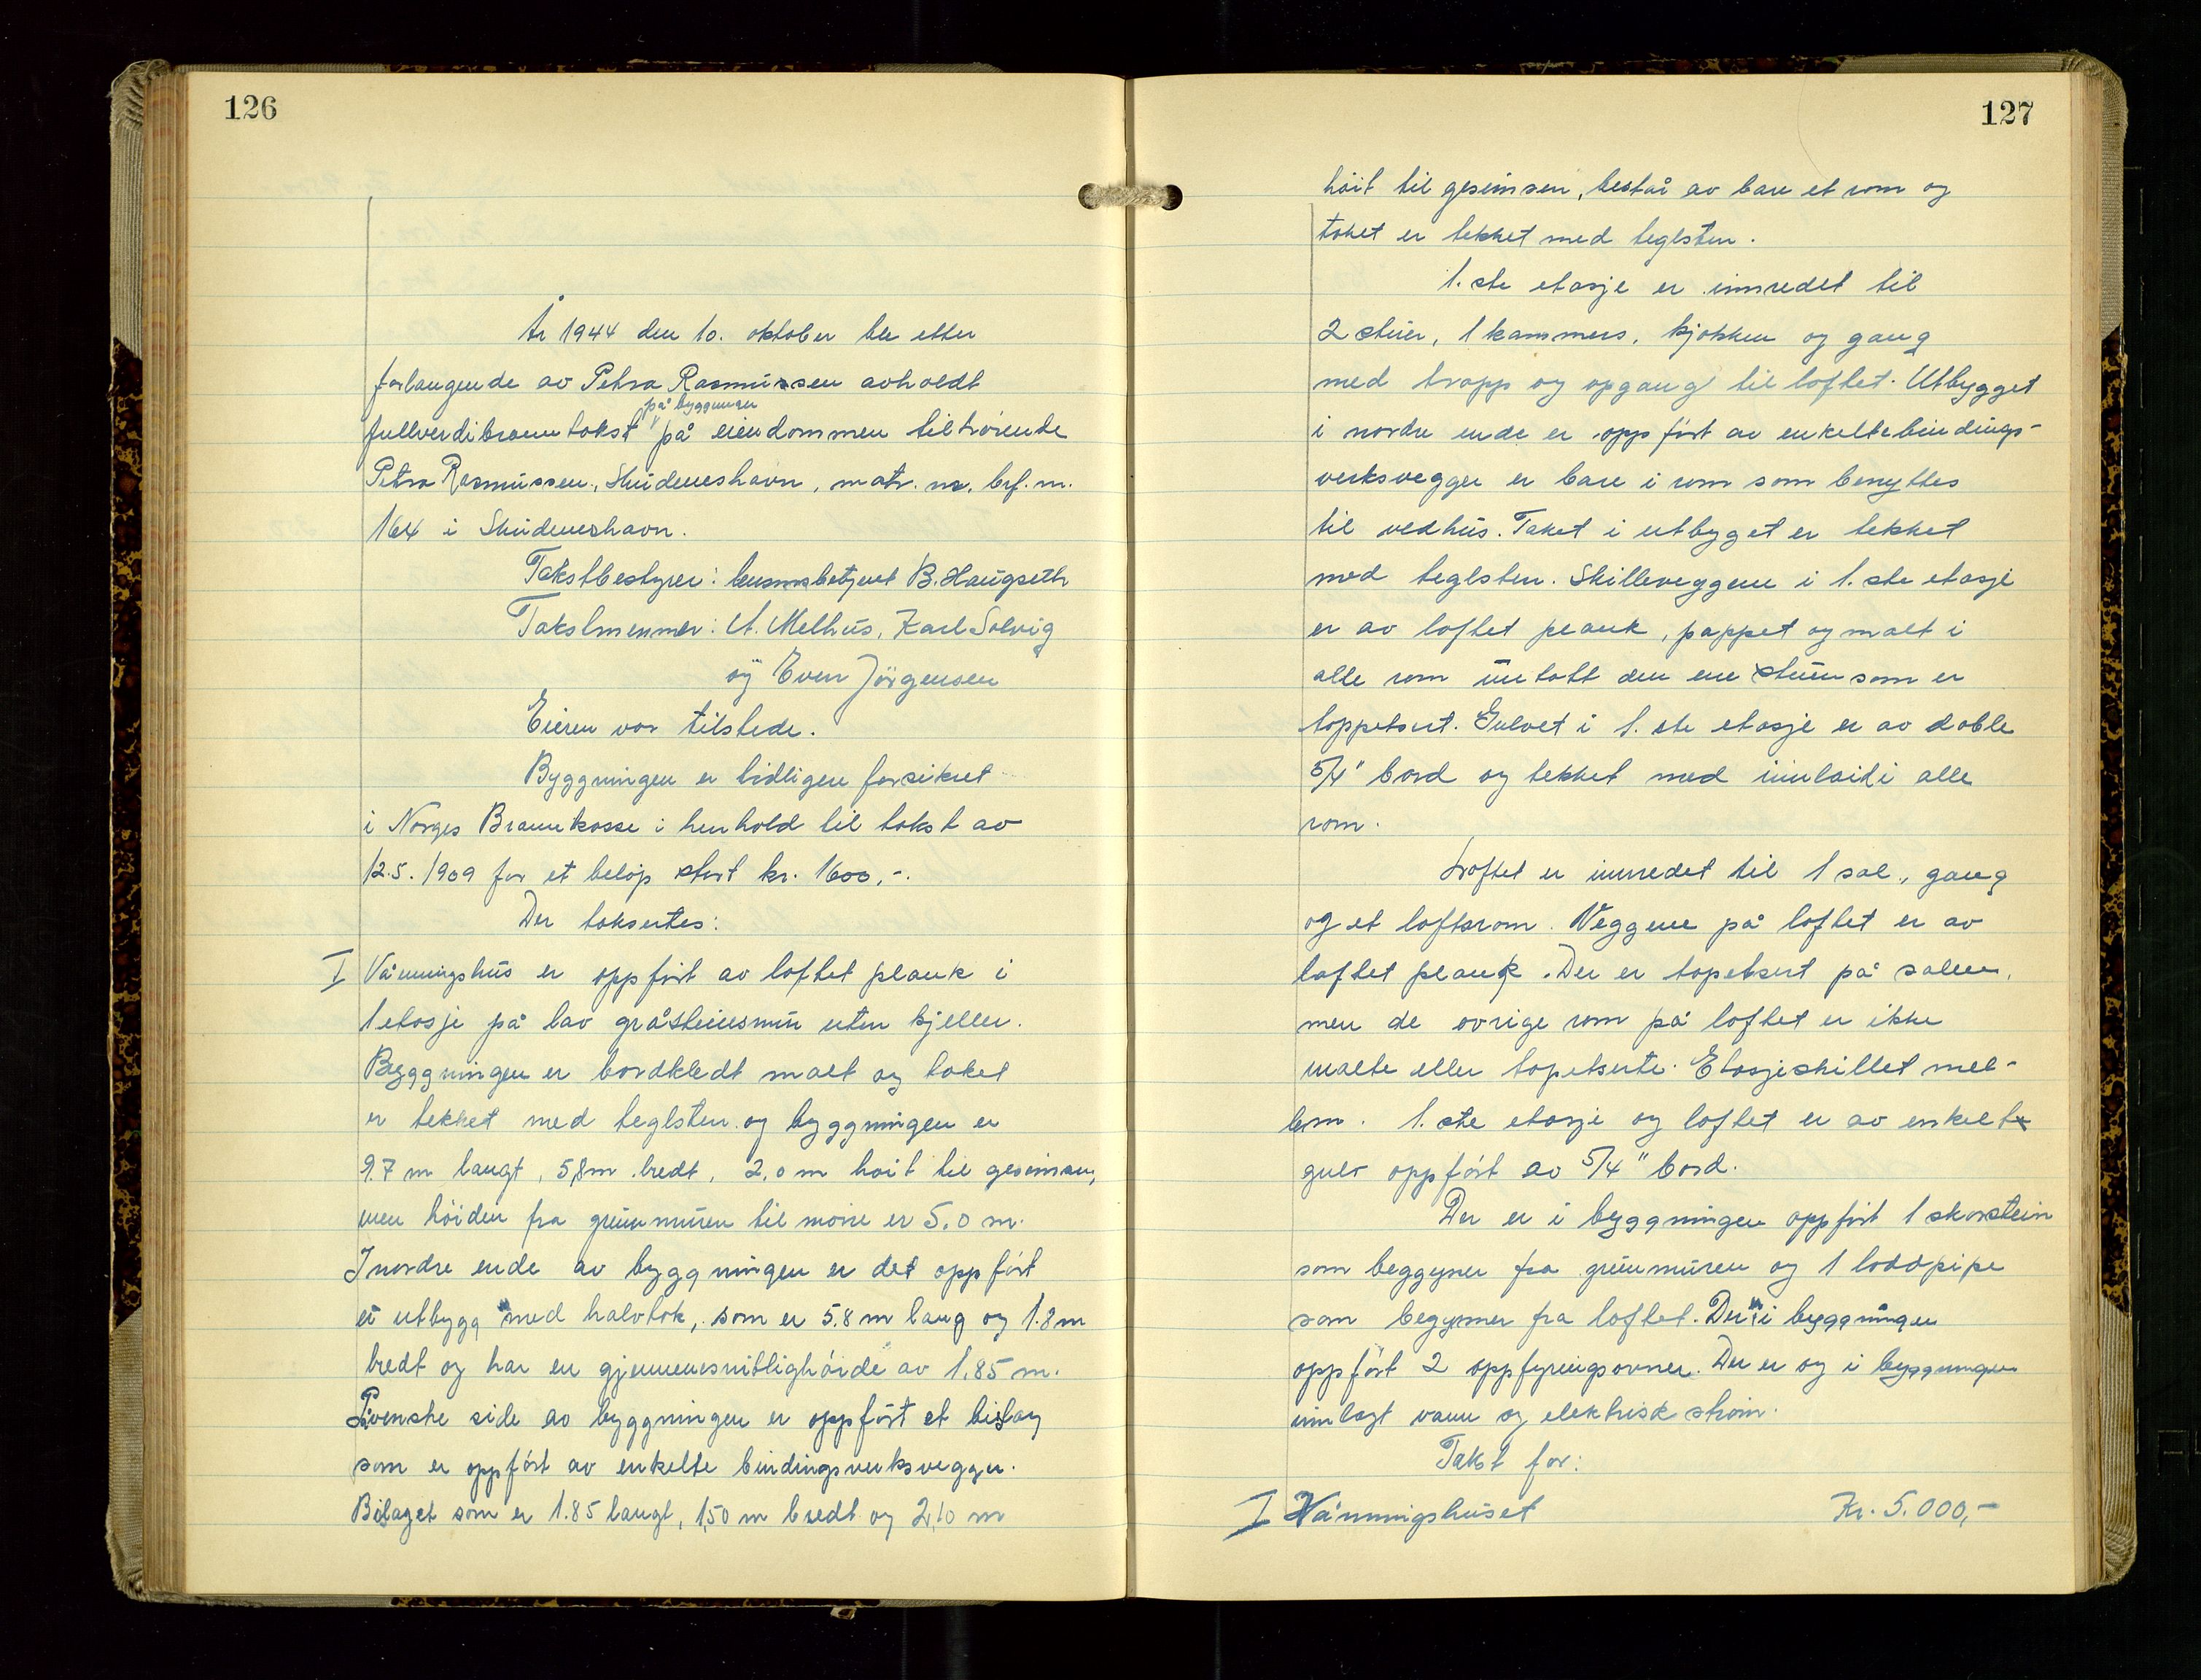 126
År 1944 den 10. oktober ble etter
forlangende av Petra Rasmussen avholdt
på byggningen
fullverdibranntakst på eiendommen tilhørende
Petra Rasmussen, Skudeneshavn, matr. nr. brf. nr.
164 i Skudeneshavn.
Takstbestyrer: lensmsbetjent B. Haugseth
Takstmenner: A. Melhus, Karl Solvig
og Even Jörgensen
Eieren var tilstede.
Byggningen er tidligere forsikret
i Norges Brannkasse i henhold til takst av
12.5.1909 for et beløp stort kr. 1600,-.
Der taksertes:
I Vånningshus er oppfört av loftet plank i
1 etasje på lav gråsteinsmur uten kjeller.
Byggningen er bordkledt malt og taket
er tekket med teglsten og byggningen er
9.7 m langt, 5,8 m bredt, 2,0 m höit til gesimsen,
men höiden fra grunnmuren til möne er 5,0 m.
I nordre ende av byggningen er det oppfört
et utbygg med halvtak, som er 5.8 m lang og 1.8 m
bredt og har en gjennemsnittlighöide av 1,85 m.
På venstre side av byggningen er oppfört et bislag
som er oppfört av enkelte bindingsverksvegger.
Bislaget som er 1.85 langt, 1,50 m bredt og 2,10 m
127
höit til gesimsen, består av bare et rom og
taket er tekket med teglsten.
1.ste etasje er innredet til
2 stuer, 1 kammers, kjøkken og gang
med trapp og opgang til loftet. Utbygget
i nordre ende er oppfört av enkeltebindings-
verksvegger er bare i rom som benyttes
til vedhus. Taket i utbyget er tekket
med teglsten. Skilleveggene i 1.ste etasje
er av loftet plank, pappet og malt i
alle rom untatt den ene stuen som er
tappetsert. Gulvet i 1.ste etasje er av doble
5/4" bord og tekket med innlaid i alle
rom.
Loftet er innredet til 1 sal, gang
og et loftsrom. Veggene på loftet er av
loftet plank. Der er tapetsert på salen,
men de øvrige rom på loftet er ikke
malte eller tapetserte. Etasjeskillet mel-
lem 1.ste etasje og loftet er av enkelt
gulv oppfört av 5/4" bord.
Der er i byggningen oppfört 1 skorstein
som beggyner fra grunnmuren og 1 loddpipe
som begynner fra loftet. Der er i byggningen
oppfört 2 oppfyringsovner. Der er og i byggningen
innlagt vann og elektrisk ström.
Takst for:
I Vånningshuset Kr. 5.000,-